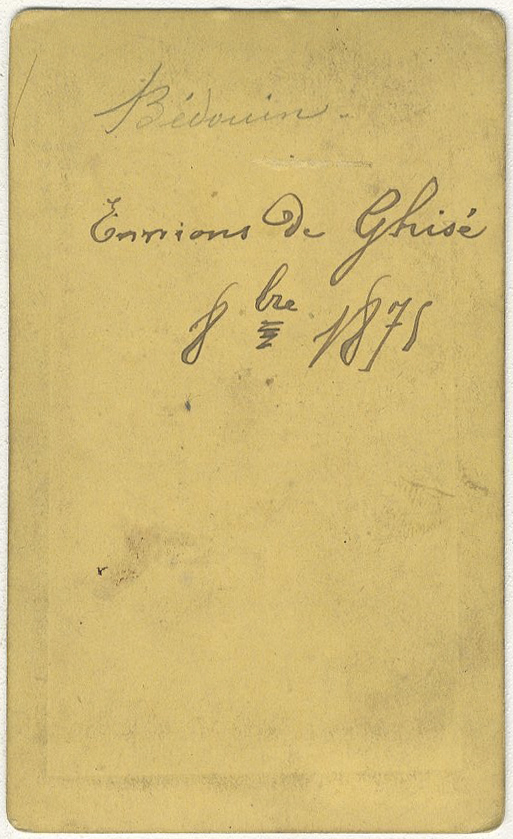 Bédouin.
Environs De Ghisé
8bre 1875